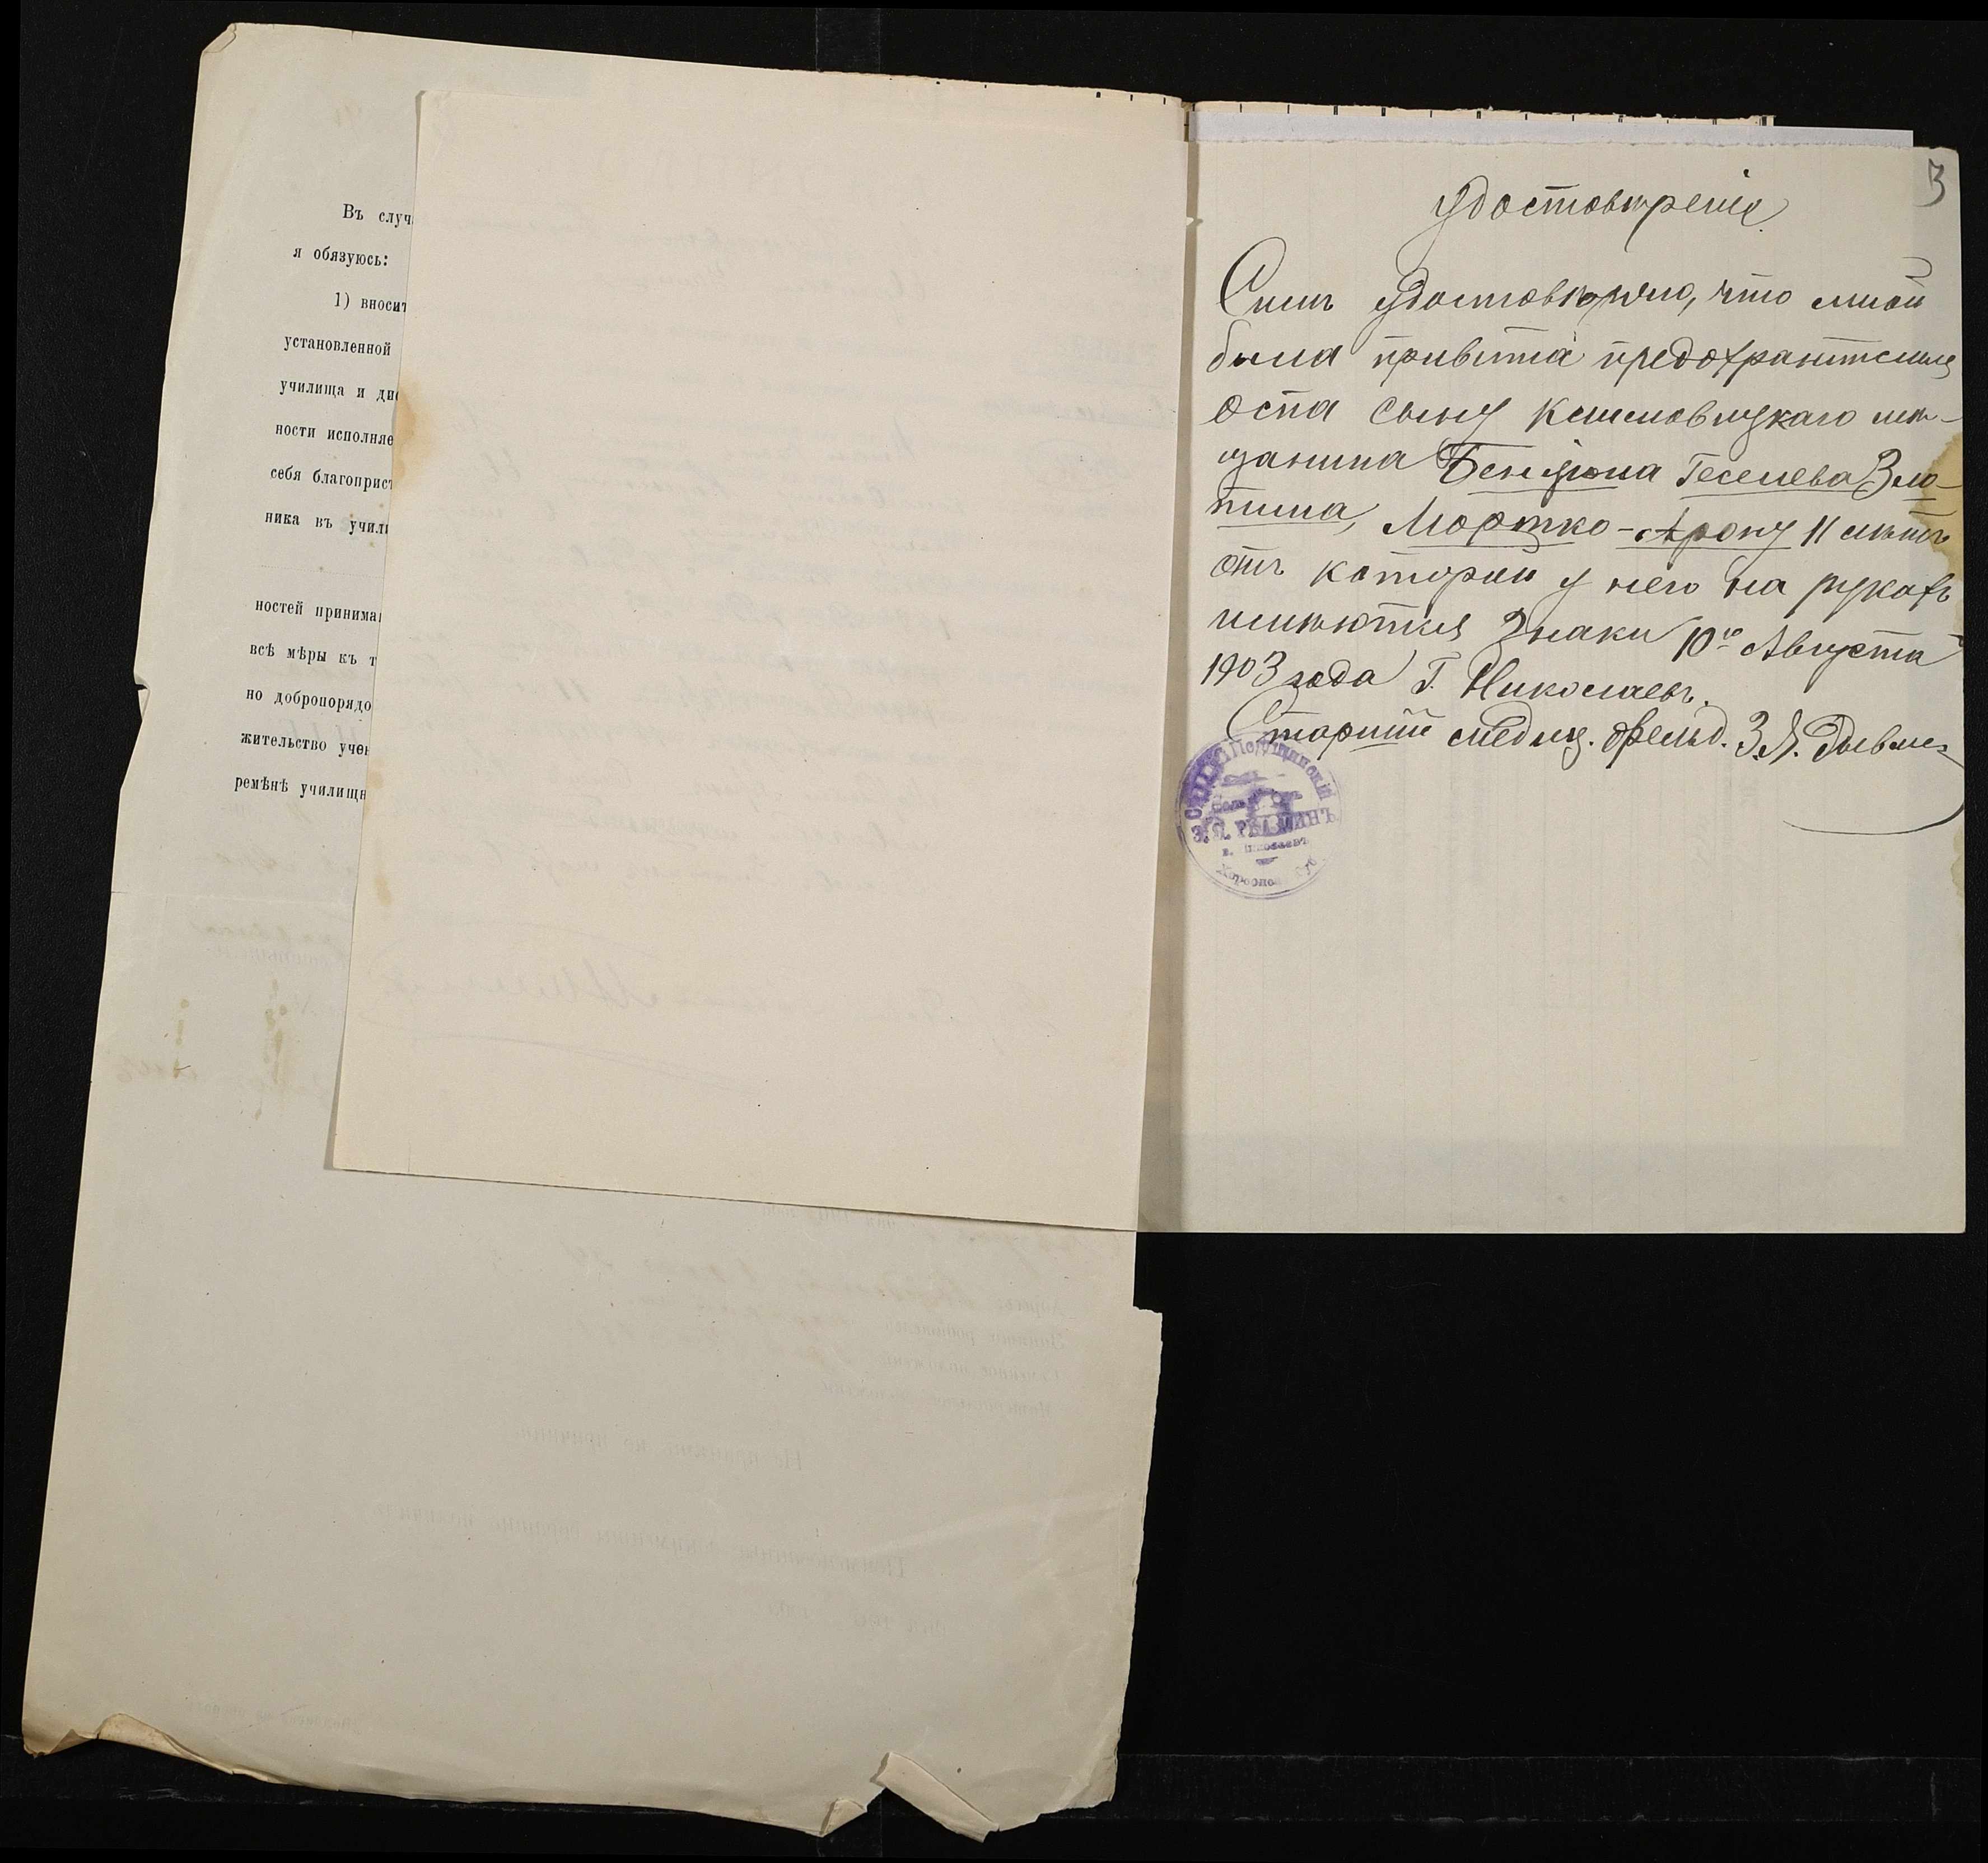 Въ случ
я обязуюсь:
1) вносит
установленной
училища и
ности исполняе
себя благоприст
ника въ учил
ностей принима
всѣ мѣры къ т
но добропорядо
жительство учен
ремѣнѣ училищн
3
Удостовѣреніе
Симъ удостовѣряю, что мной
была привита предохранительная
оспа сыну мѣ-
щанина Бенціона Геселева Зло-
тина, Мортко-Арону 11 лѣтъ
отъ которой у него на рукахъ
имѣются знаки 10го Августа
1903 года Г. Николаевъ.
Старшій медиц. фельд. З. Я.
Медицинскій
З. Я.
г. Николаевъ